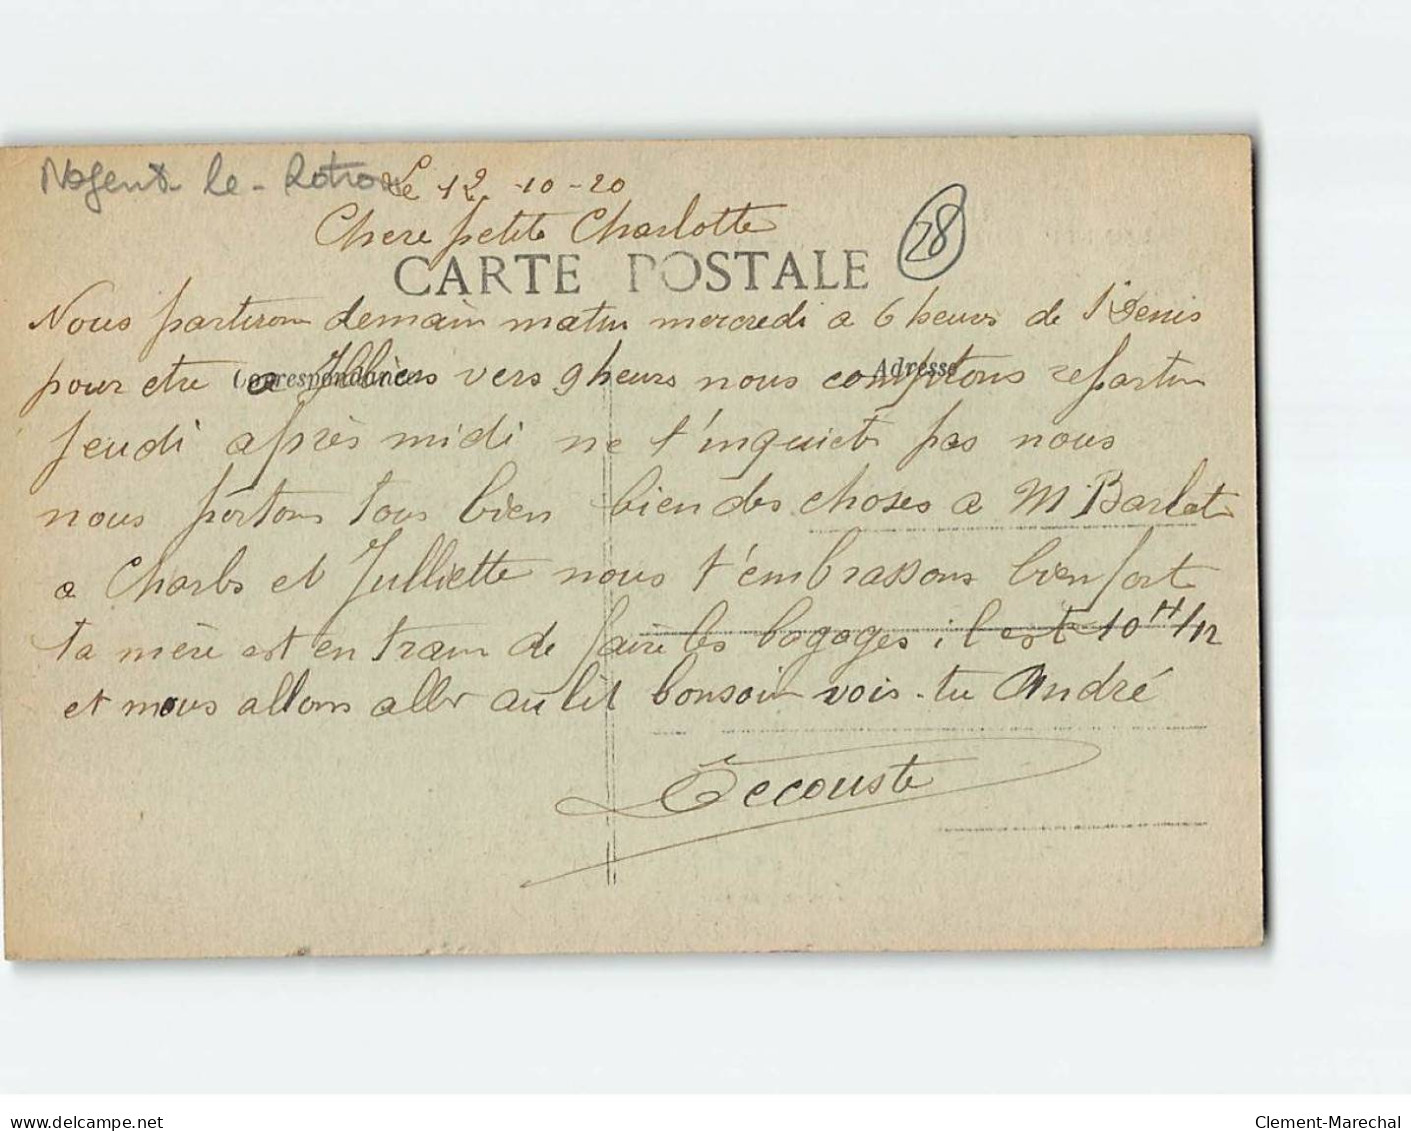 Nogent-le-Rotrou Le 12-10-20
28
Chere petite Charlotte
CARTE POSTALE
Nous partiron demain matin mercredi a 6 heures de Denis
Correspondance
Adresse
pour etre a Illiers vers 9 heures nous comptons repartir
jeudi après midi ne t'inquiete pas nous
nous portons tous bien bien des choses a M Barlat
a Charles et Julliette nous t'embrassons bien fort
ta mère est en train de faire les bagages il est 10 H 1/2
et nous allons aller au lit bonsoir vois-tu André
Lecouste
delcampe.net
Clement-Marechal